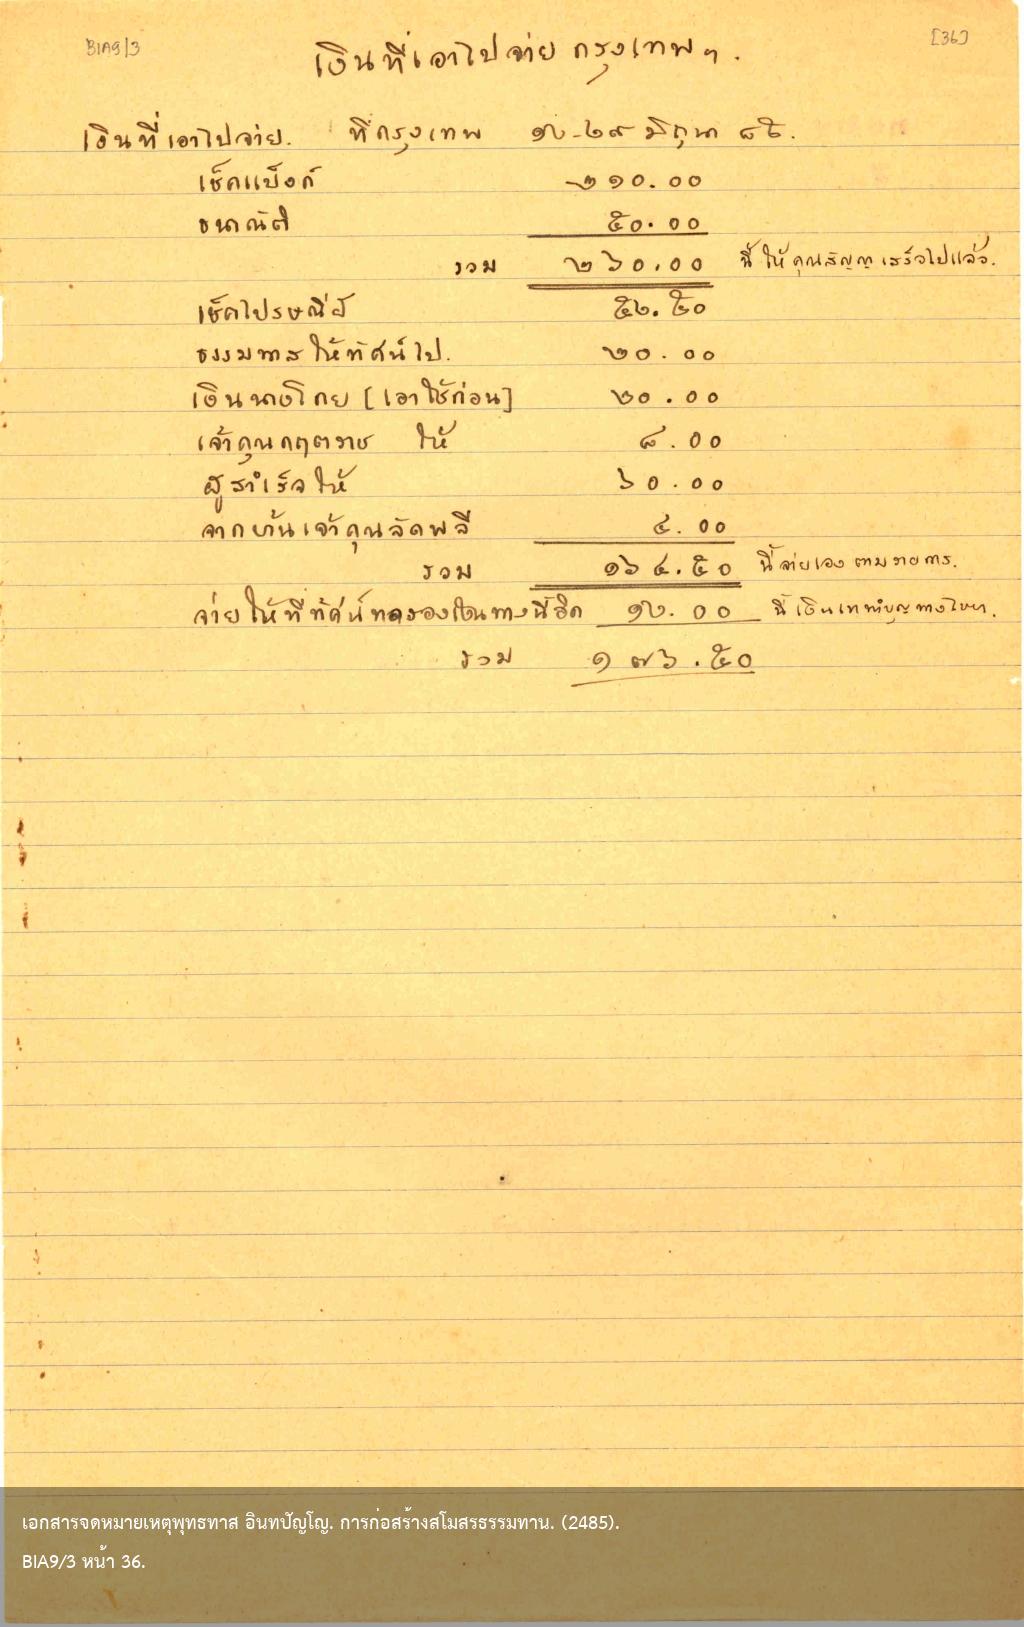 BIA9/3
[36]
เงินที่เอาไปจ่าย กรุงเทพฯ.
เงินที่เอาไปจ่าย. ที่กรุงเทพ ๑๒-๒๙ มิถุนา ๘๕.
เช็คแบ็งก์ ๒๑๐.๐๐
ธนาณัติ ๕๐.๐๐
รวม ๒๖๐.๐๐ นี้ให้คุณสัญญาเสร็จไปแล้ว.
เช็คไปรษณีย์ ๕๒.๕๐
ธรรมทาสให้ทัศน์ไป. ๒๐.๐๐
เงินนางโกย [เอาใช้ก่อน] ๒๐.๐๐
เจ้าคุณกฤตราช ให้ ๘.๐๐
ผู้สำเร็จให้ ๖๐.๐๐
จากเจ้าคุณลัดพลี ๔.๐๐
รวม ๑๖๔.๕๐ นี้จ่ายเอง ตามรายการ.
จ่ายให้ที่ทัศน์ทดรองทางนี้อีก ๑๒.๐๐ นี้เงิน
รวม ๑๗๖.๕๐
เอกสารจดหมายเหตุพุทธทาส อินทปัญโญ. การก่อสร้างสโมสรธรรมทาน. (2485).
BIA9/3 หน้า 36.